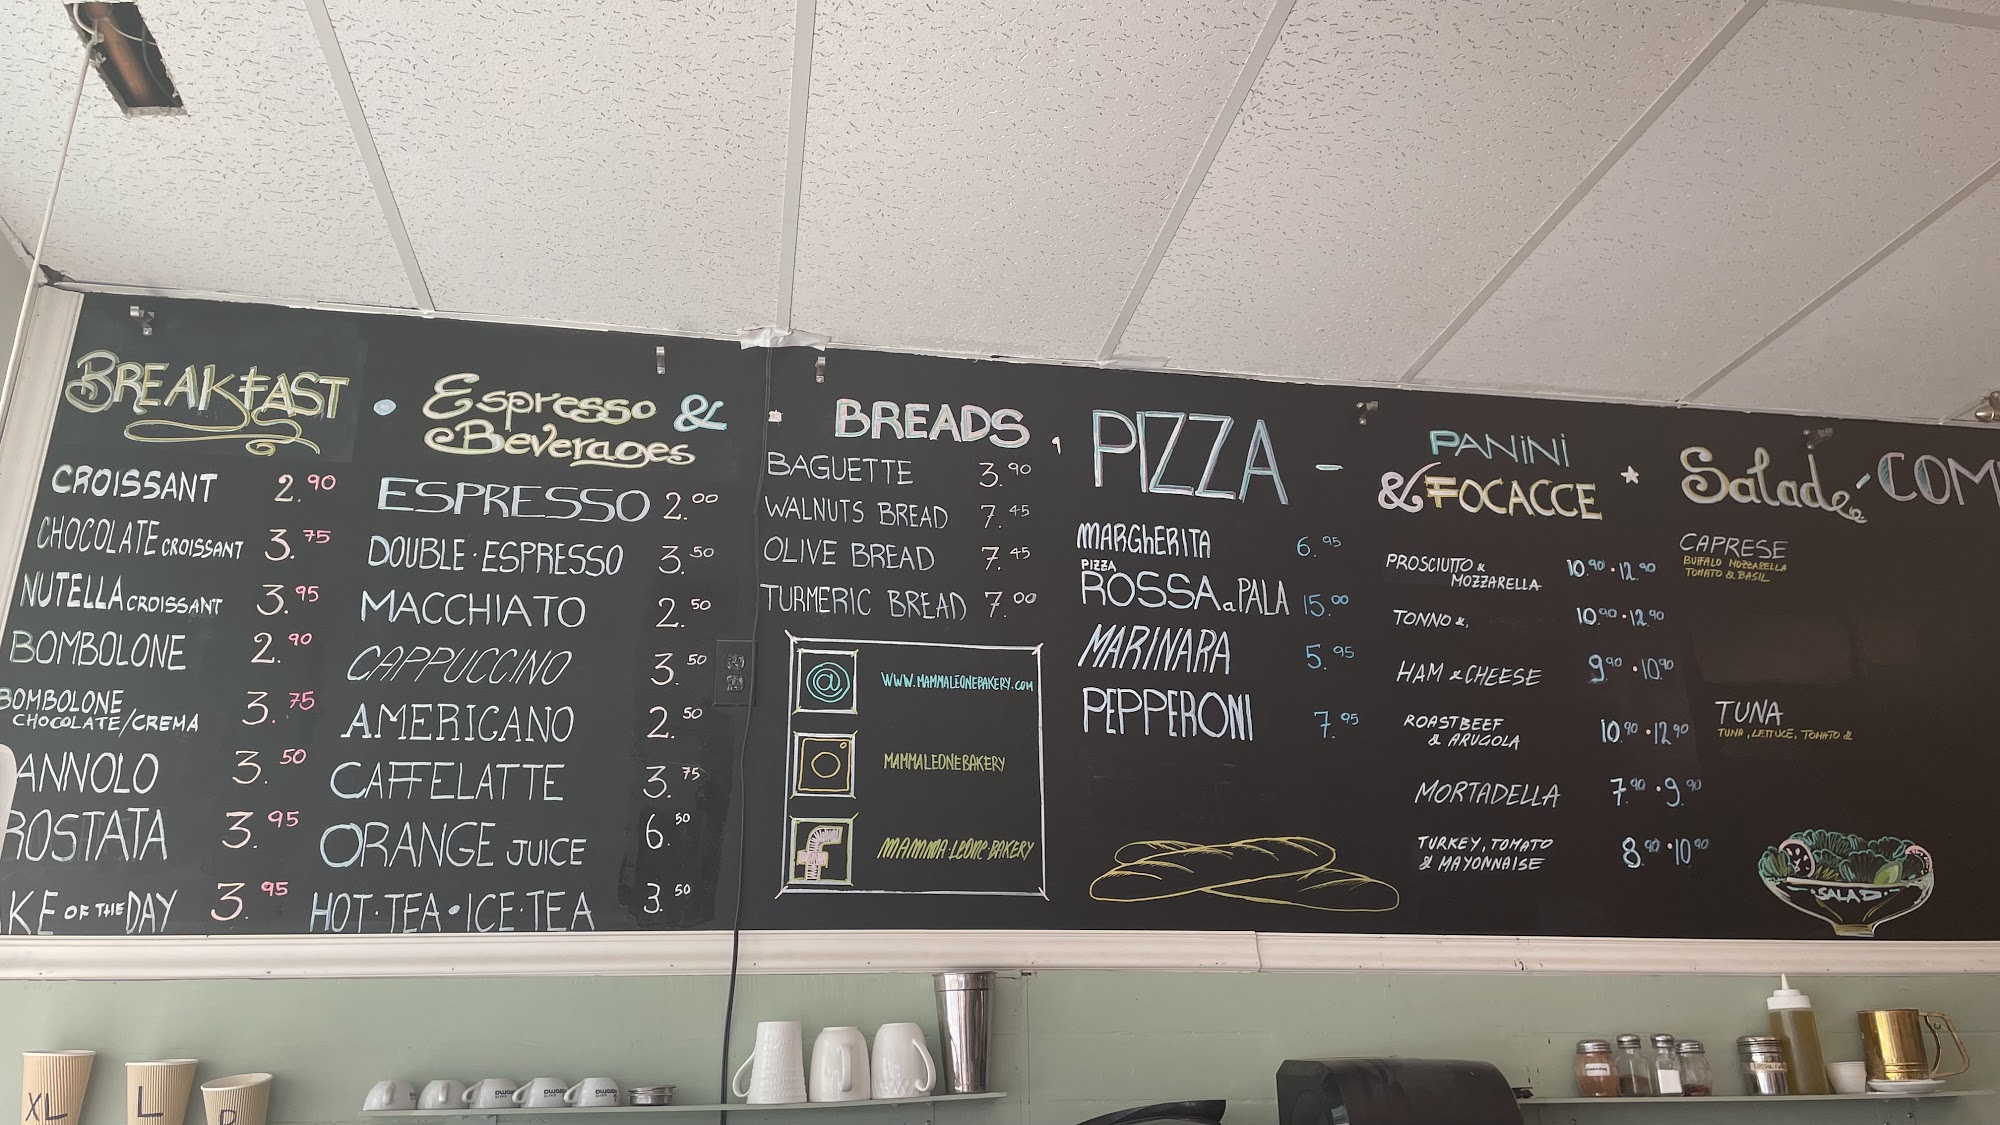 BREAKFAST
CROISSANT 2.90
CHOCOLATE CROISSANT 3.75
NUTELLA CROISSANT 3.95
BOMBOLONE 2.90
BOMBOLONE
CHOCOLATE/CREMA 3.75
ANNOLO 3.50
ROSTATA 3.95
AKE OF THE DAY 3.95
• Espresso &
Beverages
ESPRESSO 2.00
DOUBLE · ESPRESSO 3.50
MACCHIATO 2.50
CAPPUCCINO 3.50
AMERICANO 2.50
CAFFELATTE 3.75
ORANGE JUICE 6.50
HOT·TEA•ICE·TEA 3.50
BREADS
BAGUETTE 3.90
WALNUTS BREAD 7.45
OLIVE BREAD 7.45
TURMERIC BREAD 7.00
@ WWW.MAMMALEONEBAKERY.COM
MAMMALEONEBAKERY
f MAMMA LEONE BAKERY
PIZZA -
MARGHERITA 6.95
PIZZA
ROSSA a PALA 15.00
MARINARA 5.95
PEPPERONI 7.95
PANINI
& FOCACCE
PROSCIUTTO &
MOZZARELLA 10.90 · 12.90
TONNO &, 10.90 · 12.90
HAM & CHEESE 9.90 · 10.90
ROASTBEEF
& ARUGOLA 10.90 · 12.90
MORTADELLA 7.90 · 9.90
TURKEY, TOMATO
& MAYONNAISE 8.90 · 10.90
Salade
CAPRESE
BUFALO MOZZARELLA
TOMATO & BASIL
TUNA
TUNA, LETTUCE, TOMATO &
SALAD
COM
XL
L